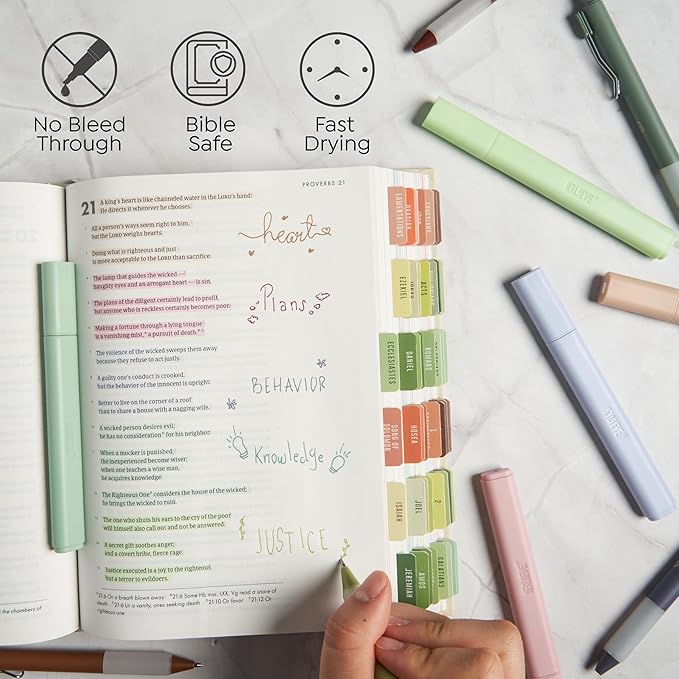 No Bleed
Through
Bible
Safe
Fast
Drying
PROVERBS 21
21 A king's heart is like channeled water in the LORD's hand:
He directs it wherever he chooses.
All a person's ways seem right to him,
but the LORD weighs hearts.
Doing what is righteous and just
is more acceptable to the LORD than sacrifice.
The lamp that guides the wicked —
haughty eyes and an arrogant heart — is sin.
The plans of the diligent certainly lead to profit,
but anyone who is reckless certainly becomes poor.
Making a fortune through a lying tongue
is a vanishing mist, a pursuit of death.
The violence of the wicked sweeps them away
because they refuse to act justly.
A guilty one's conduct is crooked,
but the behavior of the innocent is upright.
Better to live on the corner of a roof
than to share a house with a nagging wife.
A wicked person desires evil;
he has no consideration for his neighbor.
When a mocker is punished,
the inexperienced become wiser;
when one teaches a wise man,
he acquires knowledge.
The Righteous One considers the house of the wicked;
he brings the wicked to ruin.
The one who shuts his ears to the cry of the poor
will himself also call out and not be answered.
A secret gift soothes anger,
and a covert bribe, fierce rage.
Justice executed is a joy to the righteous
but a terror to evildoers.
21:6 Or a breath blown away 21:6 Some Hb mss, LXX, Vg read a snare of
death 21:6 Lit is vanity, ones seeking death 21:10 Or favor 21:12 Or
righteous one
heart
Plans
BEHAVIOR
Knowledge
JUSTICE
LAMENTATIONS
OBADIAH
EZEKIEL
ACTS
ECCLESIASTES
DANIEL
ROMANS
SONG OF
SOLOMON
HOSEA
ISAIAH
JOEL
2
JEREMIAH
AMOS
GALATIANS
the chambers of